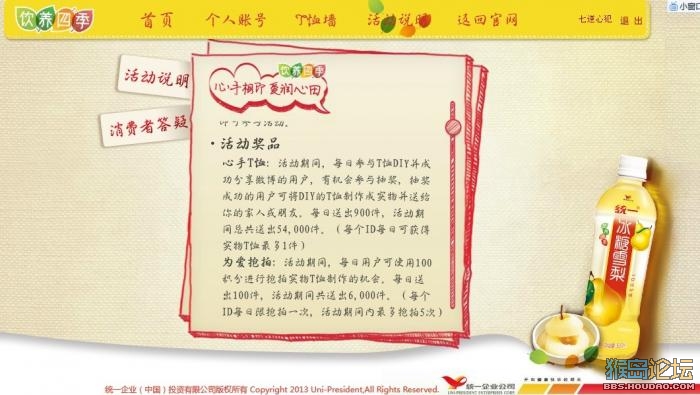 小窗口
饮养四季
首页 个人账号 T恤墙 活动说明 返回官网
七逆心犯 退出
饮养四季
心手相印 夏润心田
活动说明
消费者答疑
·活动奖品
心手T恤：活动期间，每日参与T恤DIY并成
功分享微博的用户，有机会参与抽奖，抽奖
成功的用户可将DIY的T恤制作成实物并送给
你的家人或朋友。每日送出900件，活动期
间总共送出54,000件。（每个ID每日可获得
实物T恤最多1件）
为爱抢拍：活动期间，每日用户可使用100
积分进行抢拍实物T恤制作的机会，每日送
出100件，活动期间共送出6,000件。（每个
ID每日限抢拍一次，活动期间内最多抢拍5次）
统一
冰糖雪梨
统一企业（中国）投资有限公司版权所有 Copyright 2013 Uni-President,All Rights Reserved.
统一企业公司
UNI-PRESIDENT ENTERPRISES CORP.
开创健康快乐的明天
猴岛论坛
BBS.HOUDAO.COM